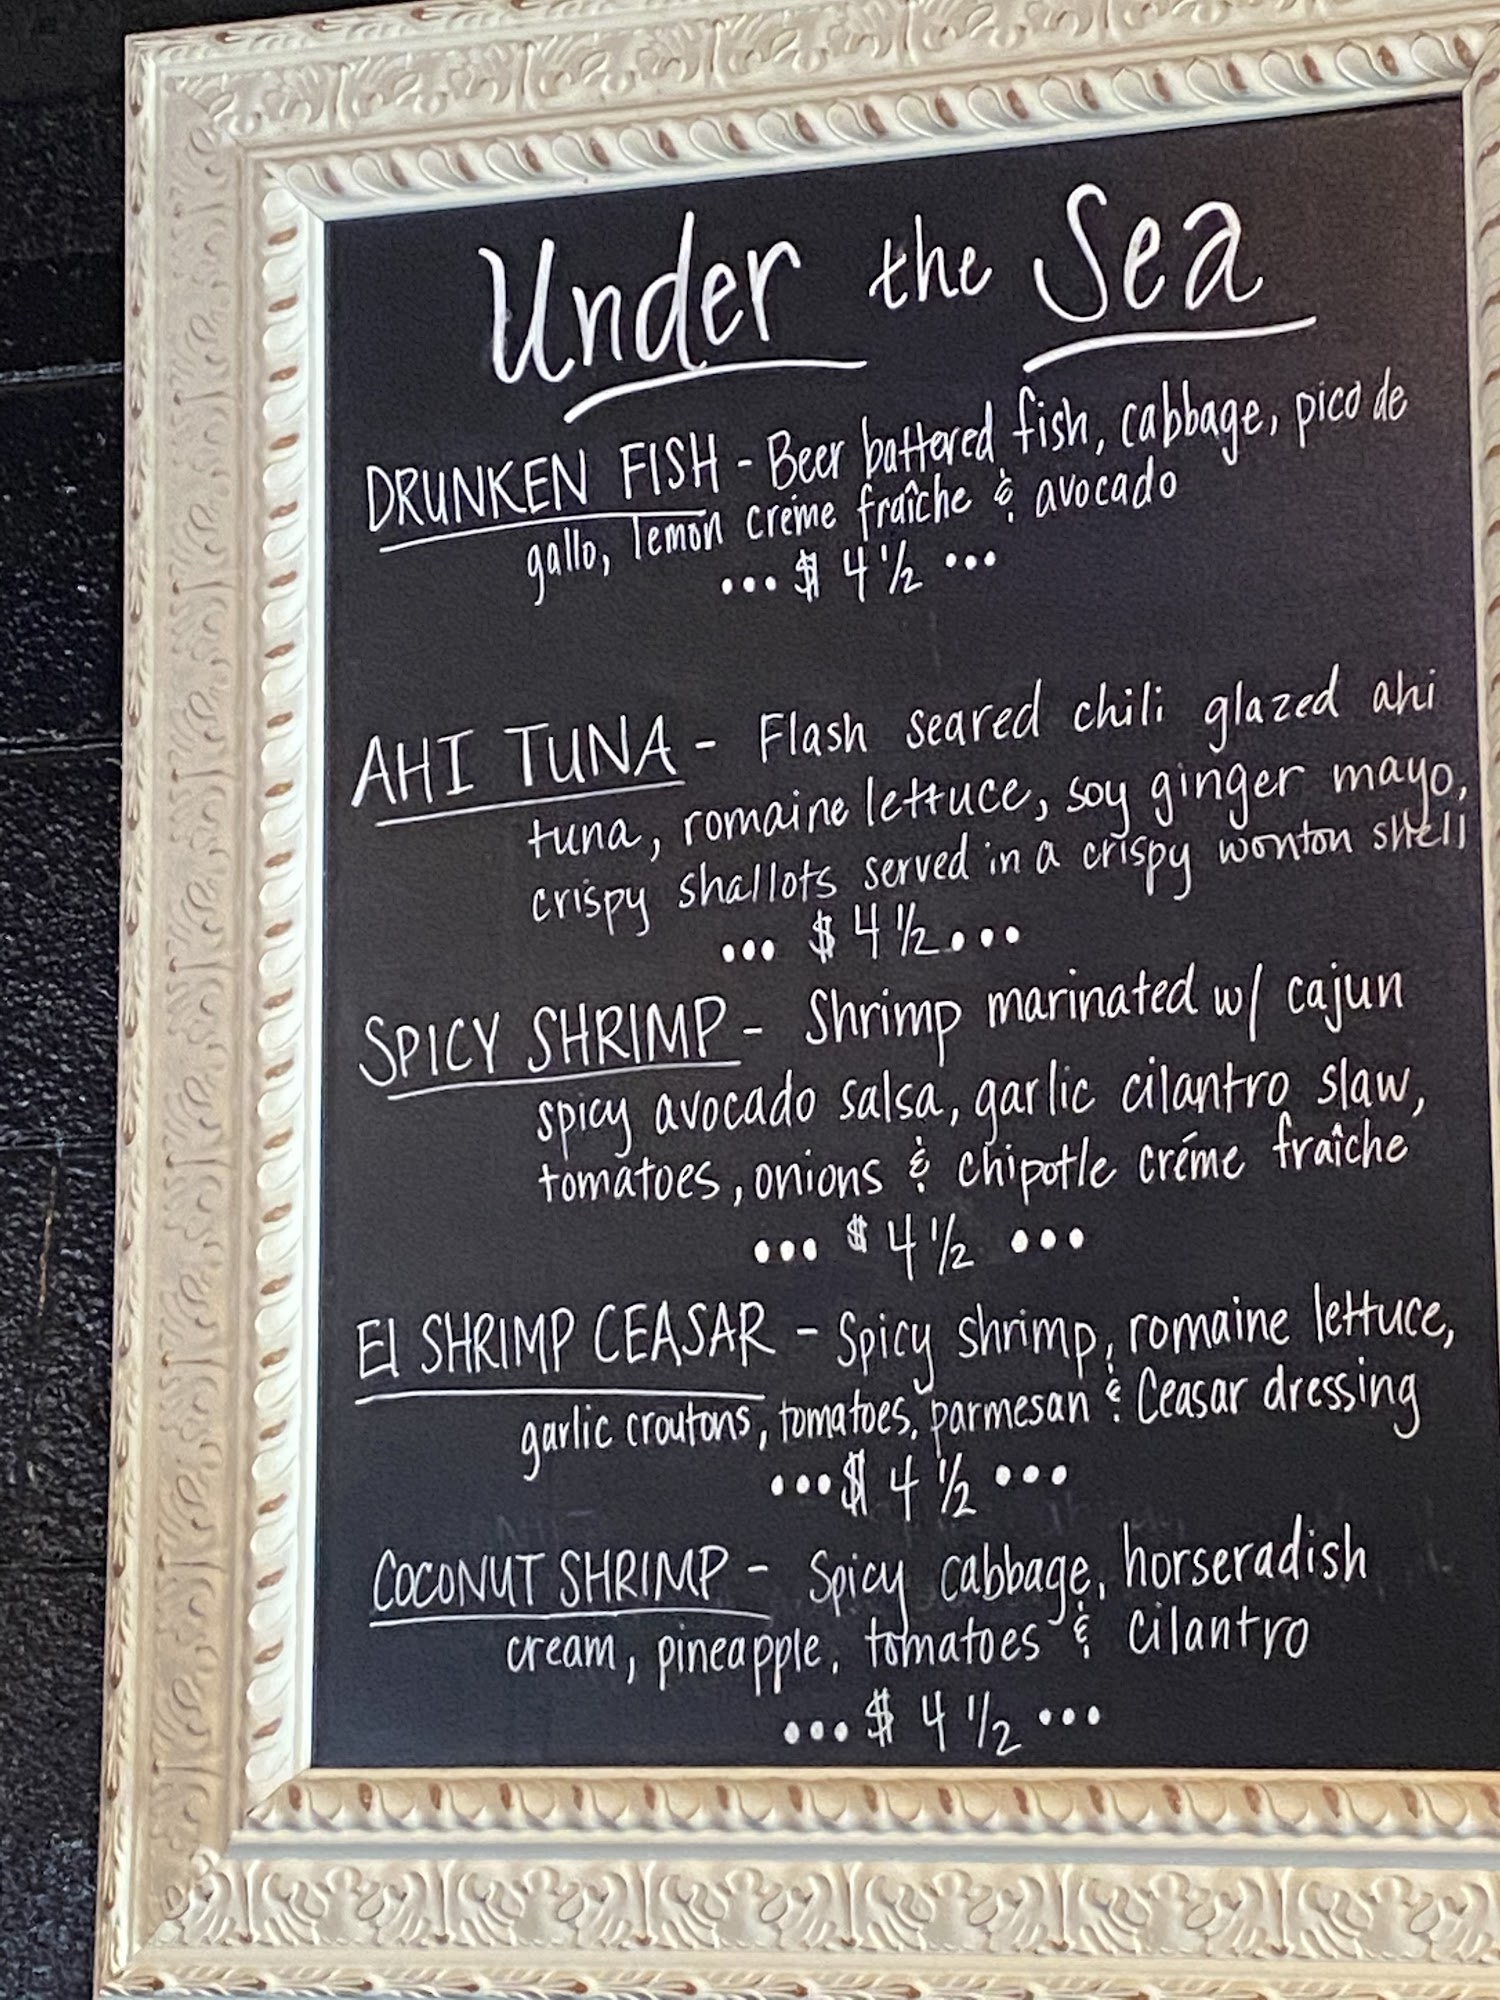 Under the Sea
DRUNKEN FISH - Beer battered fish, cabbage, pico de
gallo, lemon créme fraîche & avocado
... $ 4 1/2 ...
AHI TUNA - Flash seared chili glazed ahi
tuna, romaine lettuce, soy ginger mayo,
crispy shallots served in a crispy wonton shell
... $ 4 1/2 ...
SPICY SHRIMP - Shrimp marinated w/ cajun
spicy avocado salsa, garlic cilantro slaw,
tomatoes, onions & chipotle créme fraîche
... $ 4 1/2 ...
El SHRIMP CEASAR - Spicy shrimp, romaine lettuce,
garlic croutons, tomatoes, parmesan & Ceasar dressing
... $ 4 1/2 ...
COCONUT SHRIMP - Spicy cabbage, horseradish
cream, pineapple, tomatoes & cilantro
... $ 4 1/2 ...